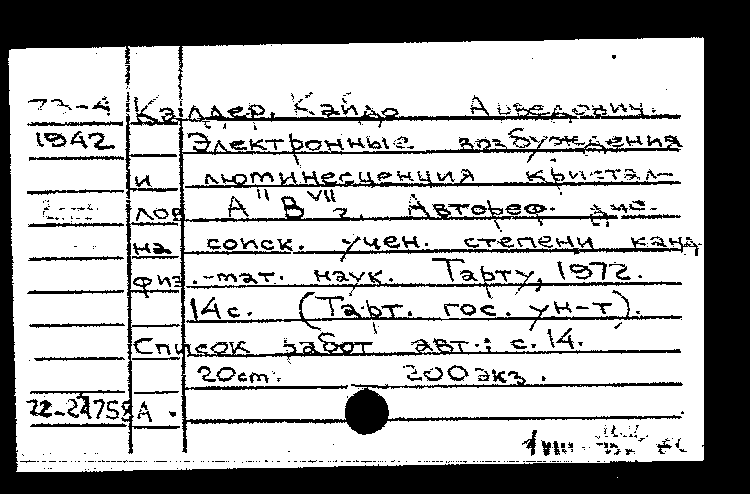 73-4 Калдер, Кайдо Арведович.
1942 Электронные возбуждения
и лютинесценция кристал-
лов A II B VII г. Автореф. дис.
на соиск. учен. степени канд
физ.-мат. наук. Тарту, 1972.
14 с. (Тарт. гос. ун-т).
Список работ авт.: с. 14.
20 ст. 200 экз.
72-24758А
VIII